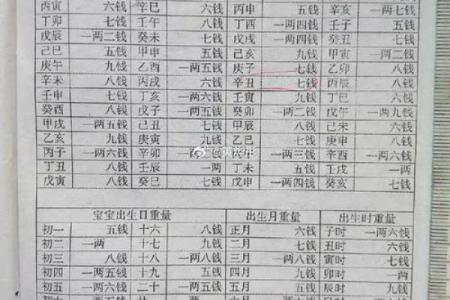 丙寅 六钱 辛巳 六钱 丙申 五钱 辛亥 一两七钱
丁卯 七钱 壬午 八钱 丁酉 一两四钱 壬子 五钱
戊辰 一两二钱 癸未 七钱 戊戌 一两四钱 癸丑 七钱
己巳 五钱 甲申 五钱 己亥 九钱 甲寅
庚午 九钱 乙酉 一两五钱 庚子 七钱 乙卯 八钱
辛未 八钱 丙戌 六钱 辛丑 七钱 丙辰 八钱
壬申 七钱 丁亥 一两六钱 壬寅 九钱 丁巳 六钱
癸酉 八钱 戊子 一两五钱 癸卯 一两二钱 戊午 一两九钱
甲戌 一两五钱 己丑 七钱 甲辰 八钱 己未 六钱
乙亥 九钱 庚寅 九钱 乙巳 七钱 庚申 八钱
丙子 一两六钱 辛卯 丙午 一两三钱 辛酉 一两六钱
丁丑 八钱 壬辰 一两 丁未 五钱 壬戌 一两
戊寅 八钱 癸巳 七钱 戊申 一两四钱 癸亥 七钱
宝宝出生日重量 出生月重量 出生时重量
初一 五钱 十六 八钱 正月 六钱 子时 一两六钱
初二 一两 十七 九钱 二月 七钱 丑时 六钱
初三 八钱 十八 一两八钱 三月 一两八钱 寅时 七钱
初四 一两五钱 十九 五钱 四月 九钱 卯时 一两
初五 一两六钱 二十 一两五钱 五月 五钱 辰时 九钱